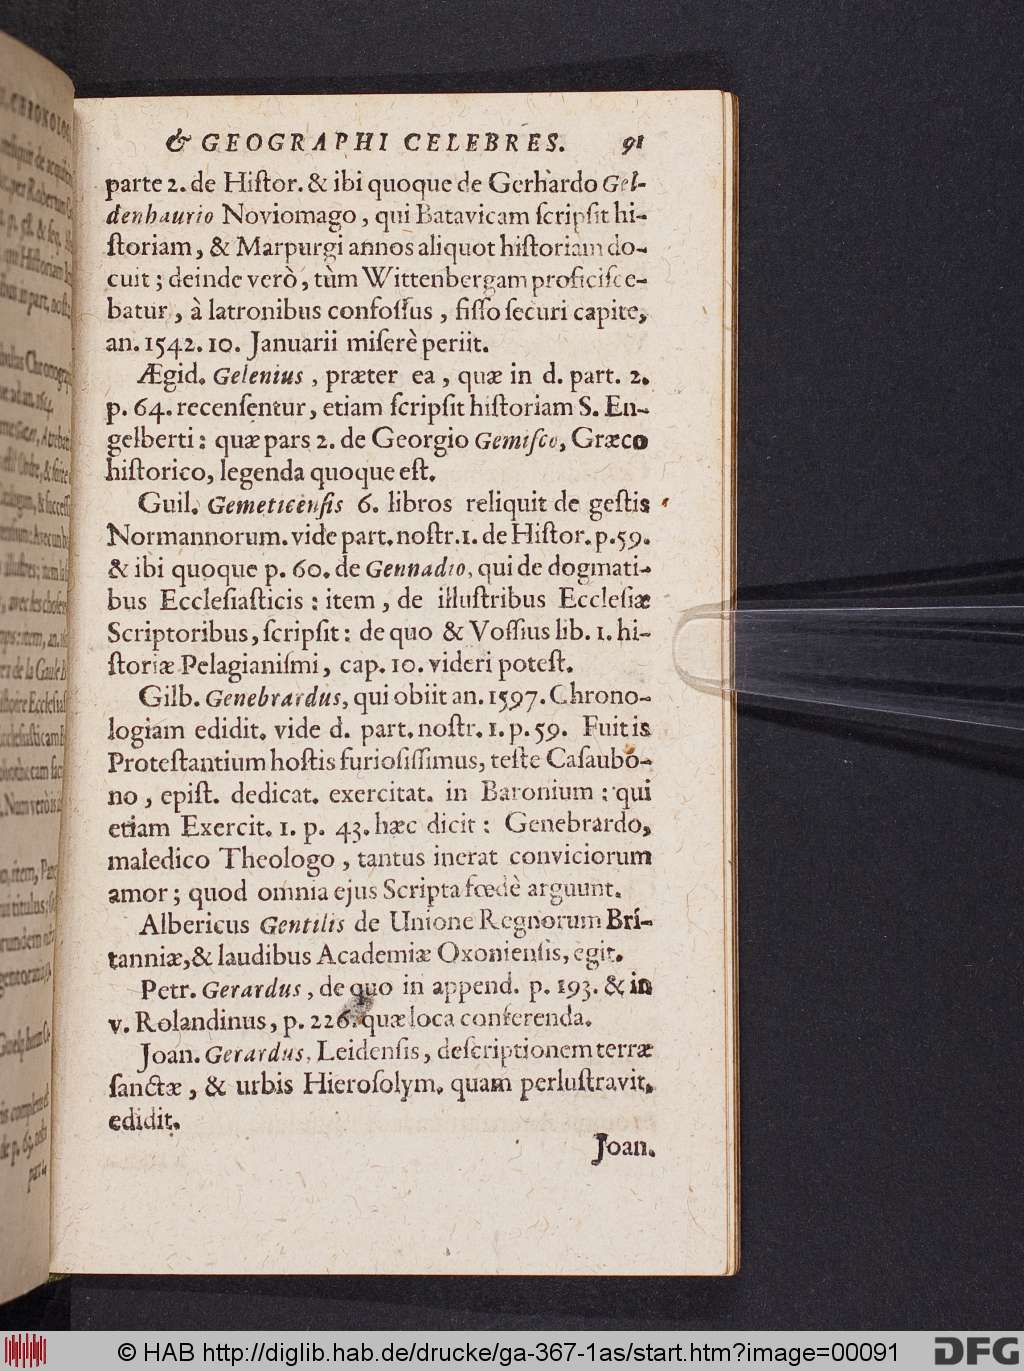 & GEOGRAPHI CELEBRES. 91
parte 2. de Hiſtor. & ibi quoque de Gerhardo Gel-
denhaurio Noviomago, qui Batavicam ſcripſit hi-
ſtoriam, & Marpurgi annos aliquot hiſtoriam do-
cuit; deinde verò, tùm Wittenbergam proficiſce-
batur, à latronibus confoſſus, fiſſo ſecuri capite,
an. 1542. 10. Januarii miſerè periit.
Ægid. Gelenius, præter ea, quæ in d. part. 2.
p. 64. recenſentur, etiam ſcripſit hiſtoriam S. En-
gelberti: quæ pars 2. de Georgio Gemiſco, Græco
hiſtorico, legenda quoque eſt.
Guil. Gemeticenſis 6. libros reliquit de geſtis
Normannorum. vide part. noſtr. 1. de Hiſtor. p. 59.
& ibi quoque p. 60. de Gennadio, qui de dogmati-
bus Eccleſiaſticis: item, de illuſtribus Eccleſiæ
Scriptoribus, ſcripſit: de quo & Voſſius lib. 1. hi-
ſtoriæ Pelagianiſmi, cap. 10. videri poteſt.
Gilb. Genebrardus, qui obiit an. 1597. Chrono-
logiam edidit. vide d. part. noſtr. 1. p. 59. Fuit is
Proteſtantium hoſtis furioſiſſimus, teſte Caſaubo-
no, epiſt. dedicat. exercitat. in Baronium: qui
etiam Exercit. 1. p. 43. hæc dicit: Genebrardo,
maledico Theologo, tantus inerat conviciorum
amor; quod omnia ejus Scripta fœdè arguunt.
Albericus Gentilis de Unione Regnorum Bri-
tanniæ, & laudibus Academiæ Oxonienſis, egit.
Petr. Gerardus, de quo in append. p. 193. & in
v. Rolandinus, p. 226. quæ loca conferenda.
Joan. Gerardus, Leidenſis, deſcriptionem terræ
ſanctæ, & urbis Hieroſolym. quam perluſtravit,
edidit.
Joan.
© HAB http://diglib.hab.de/drucke/ga-367-1as/start.htm?image=00091
DFG